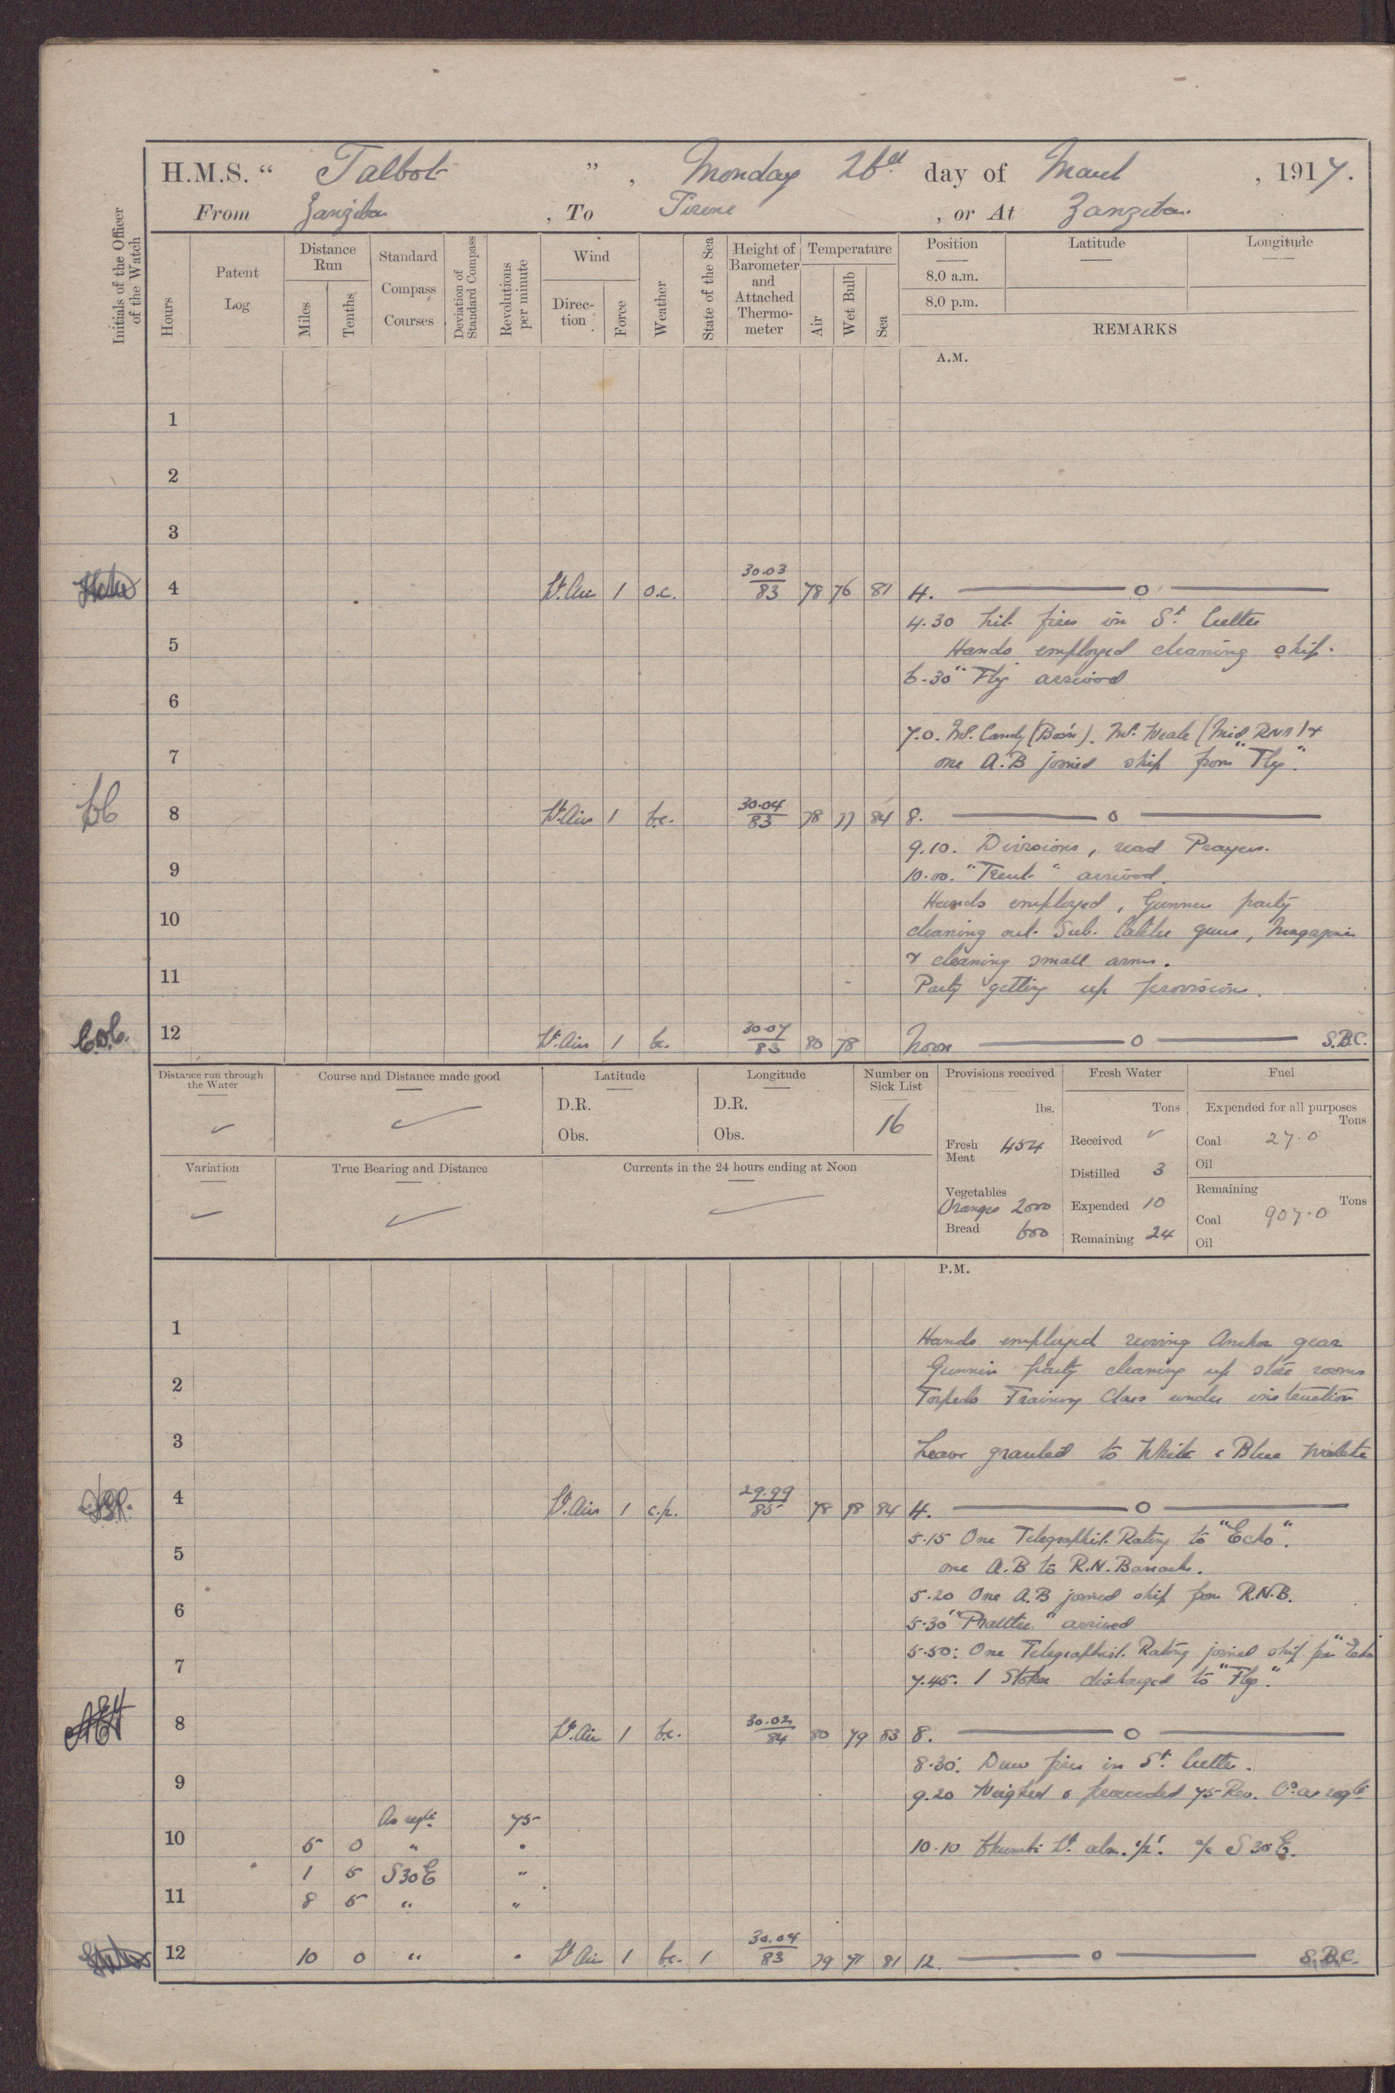 H.M.S. “ Talbot ” , Monday 26th day of March , 1917.
From Zanzibar , To Tirene , or At Zanzibar
Initials of the Officer of the Watch
Hours
Patent Log
Distance Run
Miles
Tenths
Standard Compass Courses
Deviation of Standard Compass
Revolutions per minute
Wind
Direction
Force
Weather
State of the Sea
Height of Barometer and Attached Thermometer
Temperature
Air
Wet Bulb
Sea
Position
Latitude
Longitude
8.0 a.m.
8.0 p.m.
REMARKS
A.M.
1
2
3
4 Lt. Airs 1 o.c. 30.03/83 78 76 81 4. —— o ——
4.30 Lit fires in St. Cutter
5 Hands employed cleaning ship.
6.30 "Fly" arrived
6
7.0. Mr. Candy (Bos'n). Mr. Weale (Mid RNR) &
7 one A.B joined ship from "Fly".
8 Lt. Airs 1 b.c. 30.04/83 78 77 84 8. —— o ——
9.10. Divisions, read Prayers.
9 10.00. "Trent" arrived.
10 Hands employed, Gunners party
cleaning out Sub. Calibre guns, Magazines
& cleaning small arms.
11 Party getting up provisions.
12 Lt. Airs 1 bc. 30.07/83 80 78 Noon —— o —— S.B.C.
Distance run through the Water
Course and Distance made good
Latitude
D.R.
Obs.
Longitude
D.R.
Obs.
Number on Sick List
16
Provisions received
lbs.
Fresh Meat 454
Vegetables
Oranges 2000
Bread 600
Fresh Water
Tons
Received ✓
Distilled 3
Expended 10
Remaining 24
Fuel
Expended for all purposes
Tons
Coal 27.0
Oil
Remaining
Tons
Coal 907.0
Oil
Variation
True Bearing and Distance
Currents in the 24 hours ending at Noon
P.M.
1 Hands employed reeving Anchor gear
Gunners party cleaning up store rooms
2 Torpedo Training Class under instruction
3 Leave granted to White & Blue Watch
4 Lt. Airs 1 c.p. 29.99/85 78 78 84 4. —— o ——
5.15 One Telegraphist Rating to "Echo".
5 one A.B to R.N. Barracks.
5.20 One A.B joined ship from R.N.B.
6 5.30 arrived
5.50: One Telegraphist Rating joined ship from "Echo"
7 7.45. 1 Stoker discharged to "Fly."
8 Lt. Airs 1 b.c. 30.02/84 80 79 83 8. —— o ——
8.30: Draw fires in St. Cutter.
9 9.20 Weighed & proceeded 75 Rev. Co. as reqte
As reqte 75
10 5 0 " " 10.10 Lt. abm. 'p'. a/c S30E.
1 5 S30E "
11 8 5 " "
12 10 0 " " Lt Airs 1 b.c. 1 30.04/83 79 77 81 12. —— o —— S.B.C.